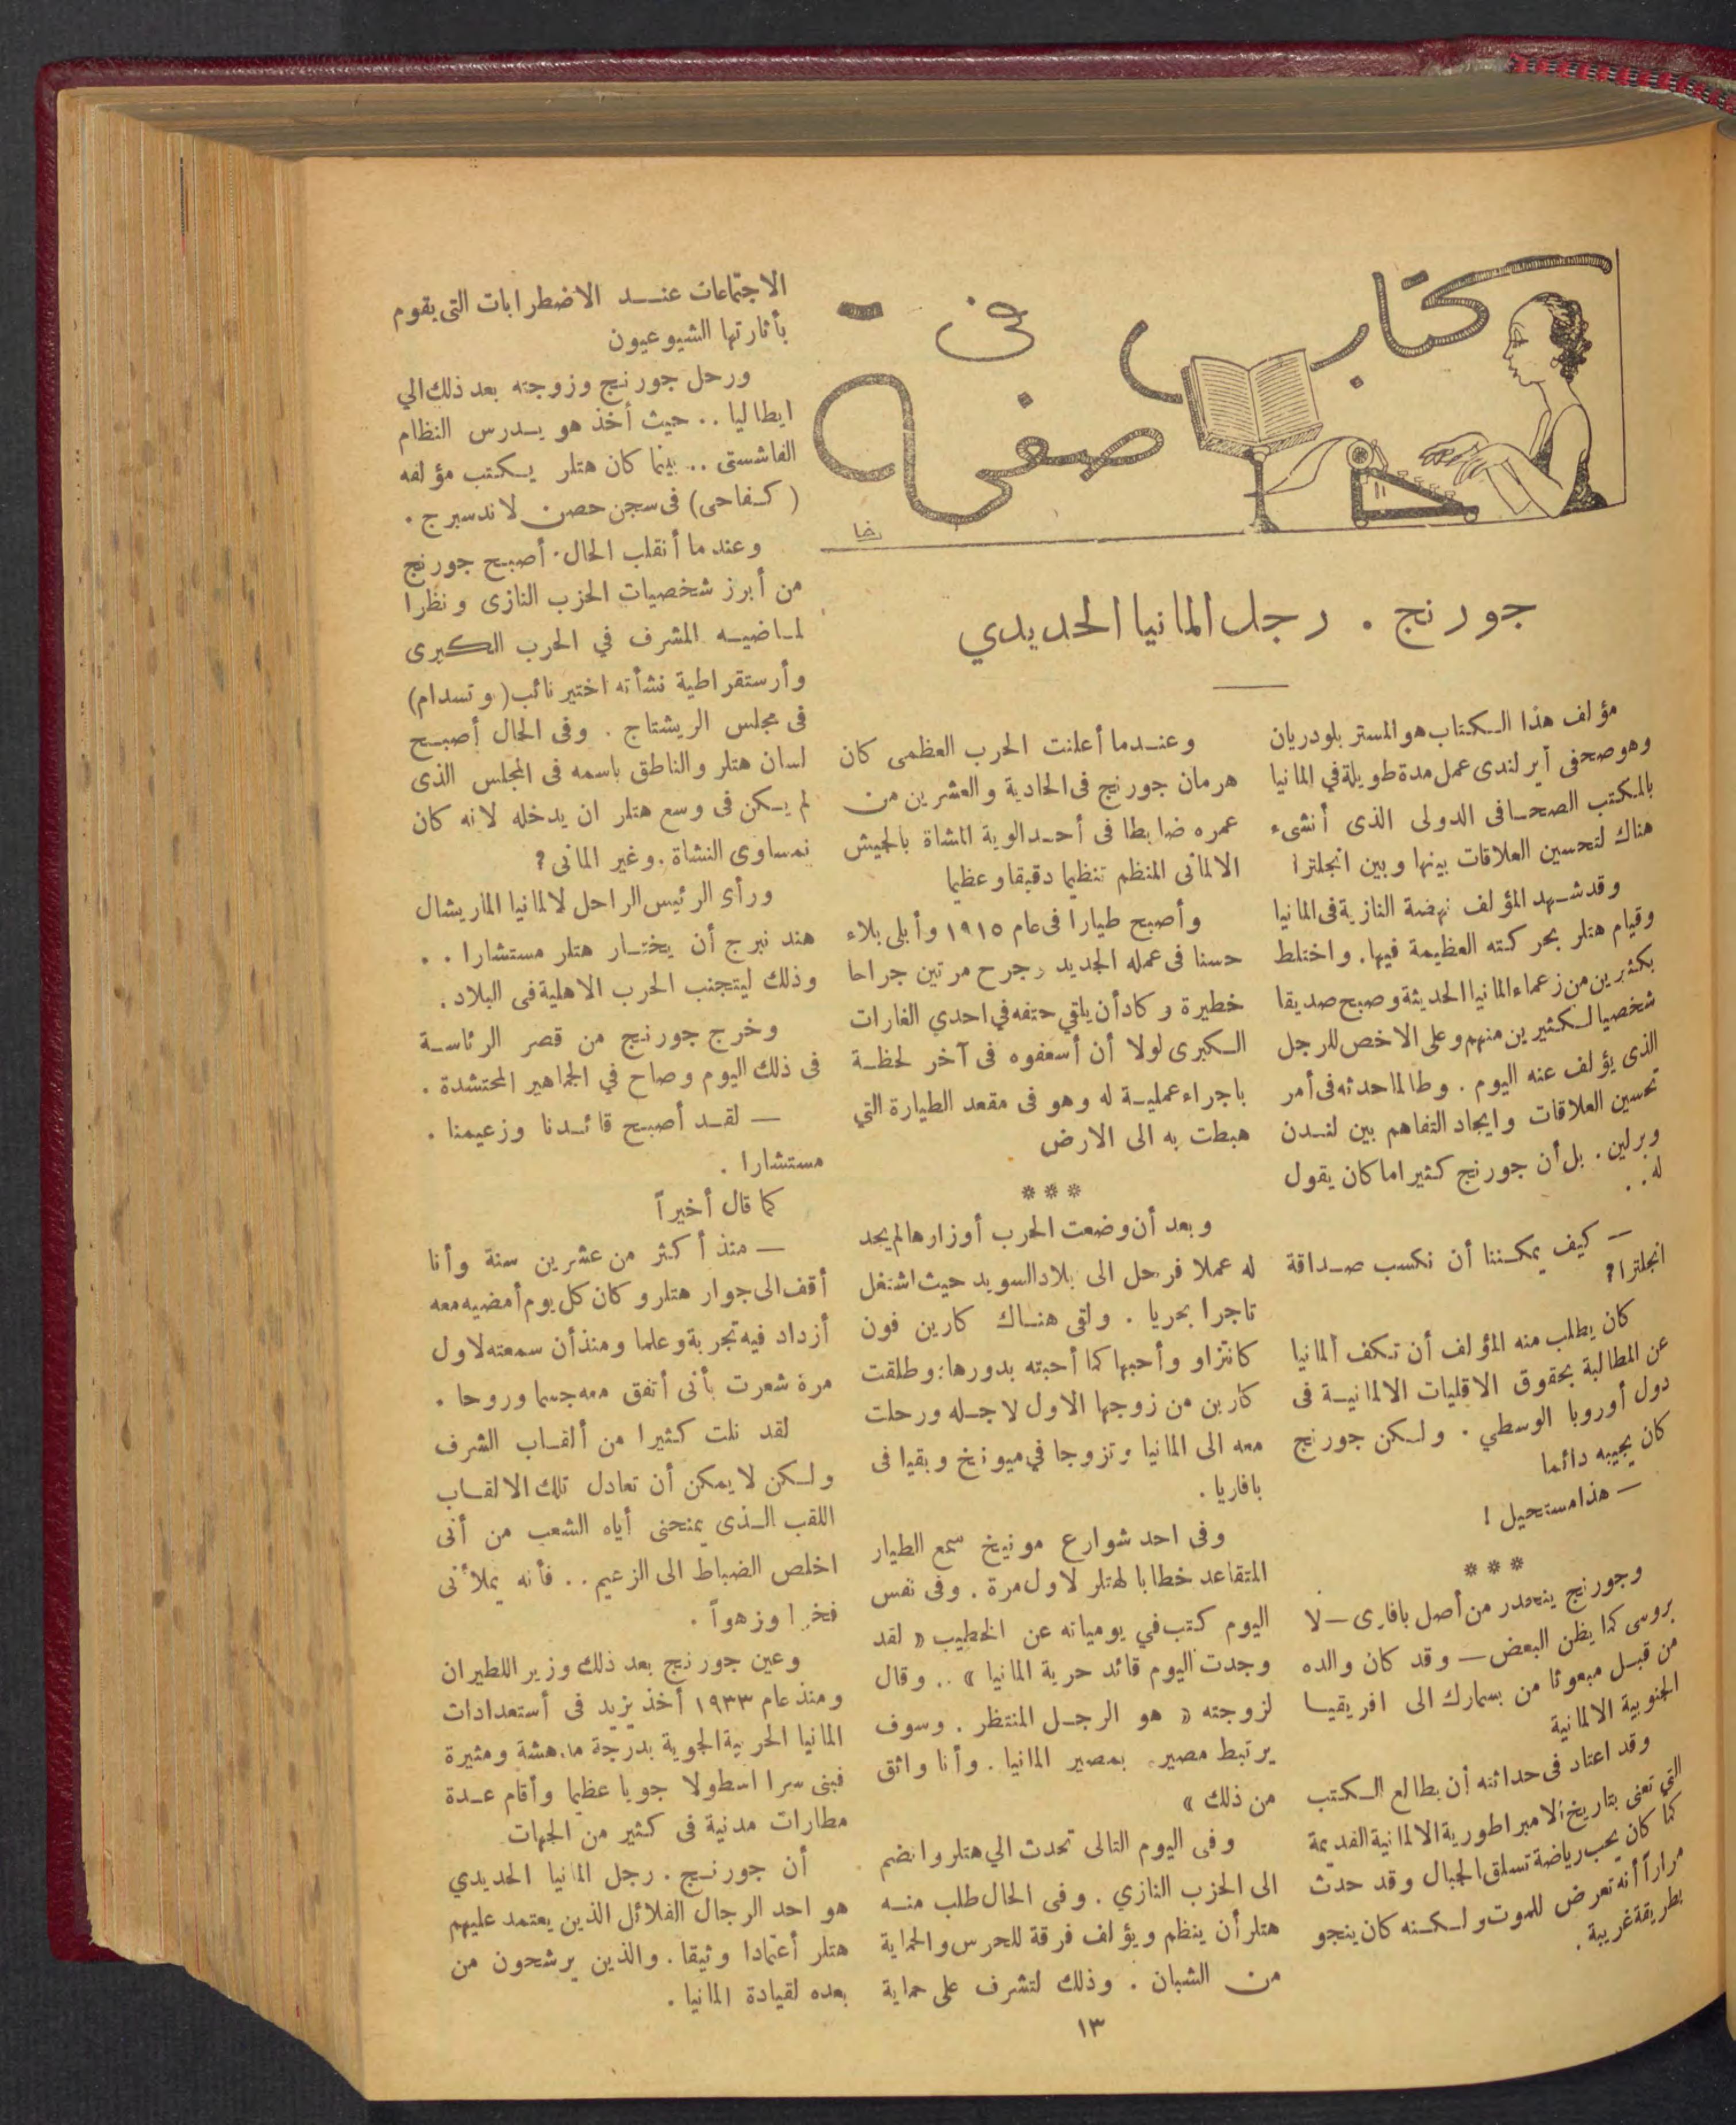 كتاب في
صفحات
رضا
جورنج . رجل المانيا الحديدي
مؤلف هذا الكتاب هو المستر بلودريان
وهو صحفى أيرلندى عمل مدة طويلة في المانيا
بالمكتب الصحافى الدولى الذى أنشىء
هناك لتحسين العلاقات بينها وبين انجلترا
وقد شهد المؤلف نهضة النازية فى المانيا
وقيام هتلر بحركته العظيمة فيها . واختلط
بكثيرين من زعماء المانيا الحديثة وصبح صديقا
شخصيا لكثيرين منهم وعلى الاخص للرجل
الذى يؤلف عنه اليوم . وطالما حدثه فى أمر
تحسين العلاقات وايجاد التفاهم بين لندن
وبرلين . بل أن جورنج كثيراما كان يقول
له . .
— كيف يمكننا أن نكسب صداقة
انجلترا ؟
كان يطلب منه المؤلف أن تكف ألمانيا
عن المطالبة بحقوق الاقليات الالمانية فى
دول أوروبا الوسطي . ولكن جورنج
كان يجيبه دائما
— هذا مستحيل !
***
وجورنج ينحدر من أصل بافارى — لا
بروسى كما يظن البعض — وقد كان والده
من قبل مبعوثا من بسمارك الى افريقيا
الجنوبية الالمانية
وقد اعتاد فى حداثته أن يطالع الكتب
التي تعنى بتاريخ الامبراطورية الالمانية القديمة
كما كان يحب رياضة تسلق الجبال وقد حدث
مراراً أنه تعرض للموت ولكنه كان ينجو
بطريقة غريبة .
وعندما أعلنت الحرب العظمى كان
هرمان جورنج فى الحادية والعشرين من
عمره ضابطا فى أحد الوية المشاة بالجيش
الالمانى المنظم تنظيما دقيقا وعظيما
وأصبح طيارا فى عام ١٩١٥ وأبلى بلاء
حسنا فى عمله الجديد وجرح مرتين جراحا
خطيرة وكاد أن يلقي حتفه في احدي الغارات
الكبرى لولا أن أسعفوه فى آخر لحظة
باجراء عملية له وهو فى مقعد الطيارة التي
هبطت به الى الارض
***
وبعد أن وضعت الحرب أوزارها لم يجد
له عملا فرحل الى بلاد السويد حيث اشتغل
تاجرا بحريا . ولقى هناك كارين فون
كانتزاو وأحبها كما أحبته بدورها : وطلقت
كارين من زوجها الاول لاجله ورحلت
معه الى المانيا وتزوجا في ميونخ وبقيا فى
بافاريا .
وفى احد شوارع مونيخ سمع الطيار
المتقاعد خطابا لهتلر لاول مرة . وفى نفس
اليوم كتب في يومياته عن الخطيب « لقد
وجدت اليوم قائد حرية المانيا » .. وقال
لزوجته « هو الرجل المنتظر . وسوف
يرتبط مصيره بمصير المانيا . وأنا واثق
من ذلك »
وفى اليوم التالى تحدث الي هتلر وانضم
الى الحزب النازي . وفى الحال طلب منه
هتلر أن ينظم ويؤلف فرقة للحرس والحماية
من الشبان . وذلك لتشرف على حماية
الاجتماعات عند الاضطرابات التى يقوم
بأثارتها الشيوعيون
ورحل جورنج وزوجته بعد ذلك الي
ايطاليا .. حيث أخذ هو يدرس النظام
الفاشستى .. بينما كان هتلر يكتب مؤلفه
( كفاحى ) فى سجن حصن لاندسبرج .
وعندما أنقلب الحال . أصبح جورنج
من أبرز شخصيات الحزب النازى ونظرا
لماضيه المشرف في الحرب الكبرى
وأرستقراطية نشأته اختير نائب ( وتسدام )
فى مجلس الريشتاج . وفى الحال أصبح
لسان هتلر والناطق باسمه فى المجلس الذى
لم يكن فى وسع هتلر ان يدخله لانه كان
نمساوى النشاة . وغير المانى ?
ورأى الرئيس الراحل لالمانيا الماريشال
هندنبرج أن يختار هتلر مستشارا . .
وذلك ليتجنب الحرب الاهلية فى البلاد .
وخرج جورنج من قصر الرئاسة
فى ذلك اليوم وصاح في الجماهير المحتشدة .
— لقد أصبح قائدنا وزعيمنا .
مستشارا .
كما قال أخيراً
— منذ أكثر من عشرين سنة وأنا
أقف الى جوار هتلر وكان كل يوم أمضيه معه
أزداد فيه تجربة وعلما ومنذ أن سمعته لاول
مرة شعرت بأنى أتفق معه جسما وروحا .
لقد نلت كثيرا من ألقاب الشرف
ولكن لا يمكن أن تعادل تلك الالقاب
اللقب الذى يمنحنى أياه الشعب من أنى
اخلص الضباط الى الزعيم .. فأنه يملأنى
فخرا وزهواً .
وعين جورنج بعد ذلك وزير اللطيران
ومنذ عام ١٩٣٣ أخذ يزيد فى أستعدادات
المانيا الحربية الجوية بدرجة مدهشة ومثيرة
فبنى سرا اسطولا جويا عظيما وأقام عدة
مطارات مدنية فى كثير من الجهات
أن جورنج . رجل المانيا الحديدي
هو احد الرجال القلائل الذين يعتمد عليهم
هتلر أعتمادا وثيقا . والذين يرشحون من
بعده لقيادة المانيا .
١٣